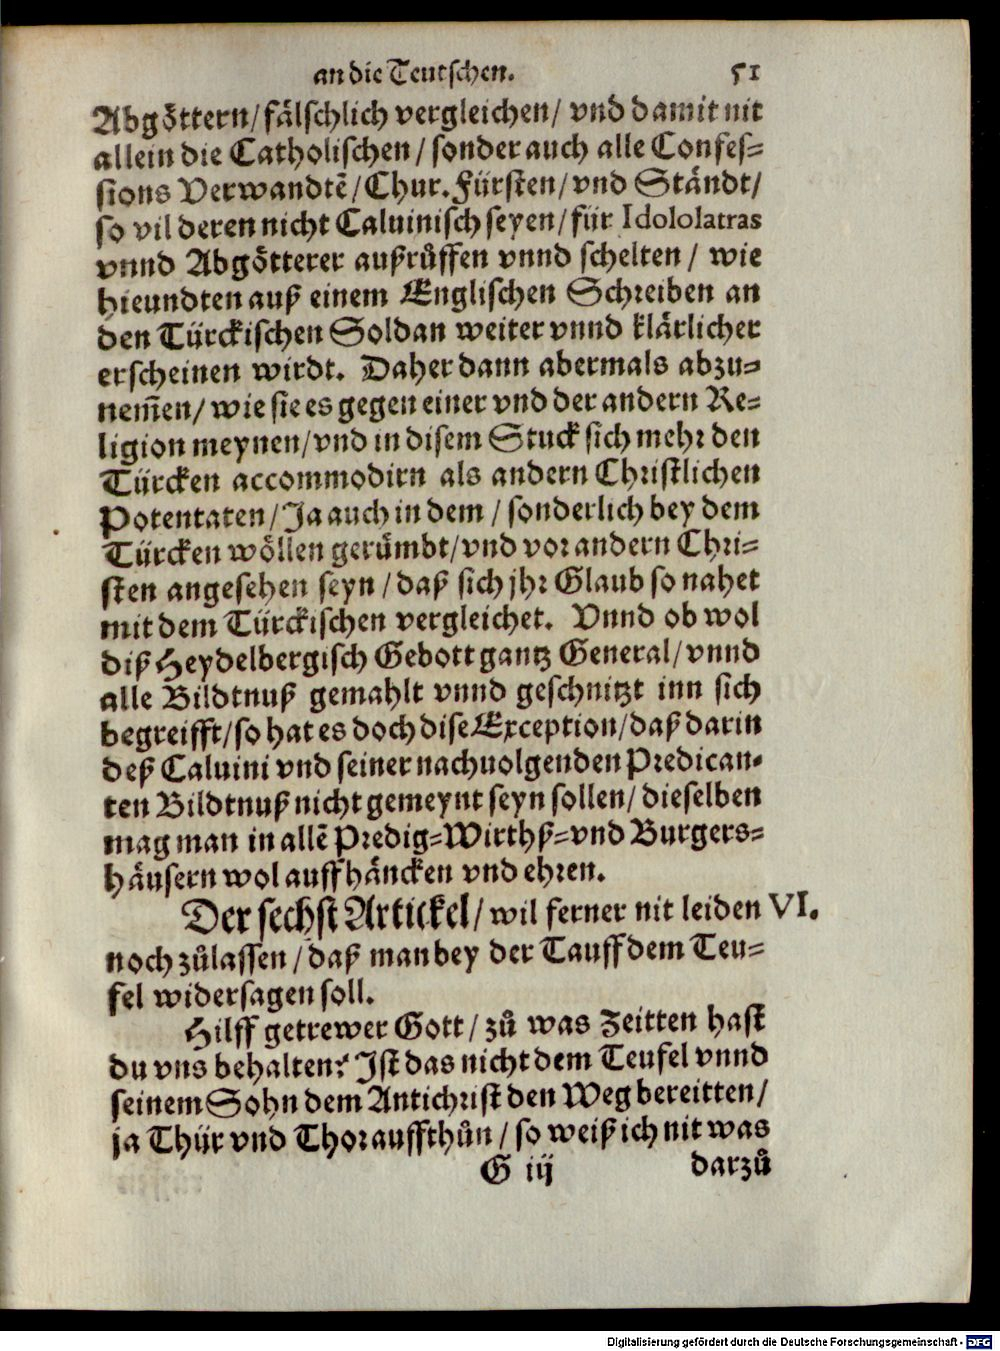 an die Teutschen. 51
Abgöttern/ fälschlich vergleichen/ vnd damit nit
allein die Catholischen/ sonder auch alle Confes-
sions Verwandtẽ/ Chur. Fürsten/ vnd Ständt/
so vil deren nicht Caluinisch seyen/ für Idololatras
vnnd Abgötterer außrůffen vnnd schelten/ wie
hieundten auß einem Englischen Schreiben an
den Türckischen Soldan weiter vnnd klärlicher
erscheinen wirdt. Daher dann abermals abzu-
nem̃en/ wie sie es gegen einer vnd der andern Re-
ligion meynen/ vnd in disem Stuck sich mehr den
Türcken accommodirn als andern Christlichen
Potentaten/ Ja auch in dem/ sonderlich bey dem
Türcken wöllen gerümbt/ vnd vor andern Chri-
sten angesehen seyn/ daß sich jhr Glaub so nahet
mit dem Türckischen vergleichet. Vnnd ob wol
diß Heydelbergisch Gebott gantz General/ vnnd
alle Bildtnuß gemahlt vnnd geschnitzt inn sich
begreifft/ so hat es doch dise Exception/ daß darin
deß Caluini vnd seiner nachuolgenden Predican-
ten Bildtnuß nicht gemeynt seyn sollen/ dieselben
mag man in allẽ Predig-Wirthß-vnd Burgers-
häusern wol auffhäncken vnd ehren.
Der sechst Artickel/ wil ferner nit leiden VI.
noch zůlassen/ daß man bey der Tauff dem Teu-
fel widersagen soll.
Hilff getrewer Gott/ zů was Zeitten hast
du vns behalten? Ist das nicht dem Teufel vnnd
seinem Sohn dem Antichrist den Weg bereitten/
ja Thür vnd Thor auffthůn/ so weiß ich nit was
G iij darzů
Digitalisierung gefördert durch die Deutsche Forschungsgemeinschaft - DFG